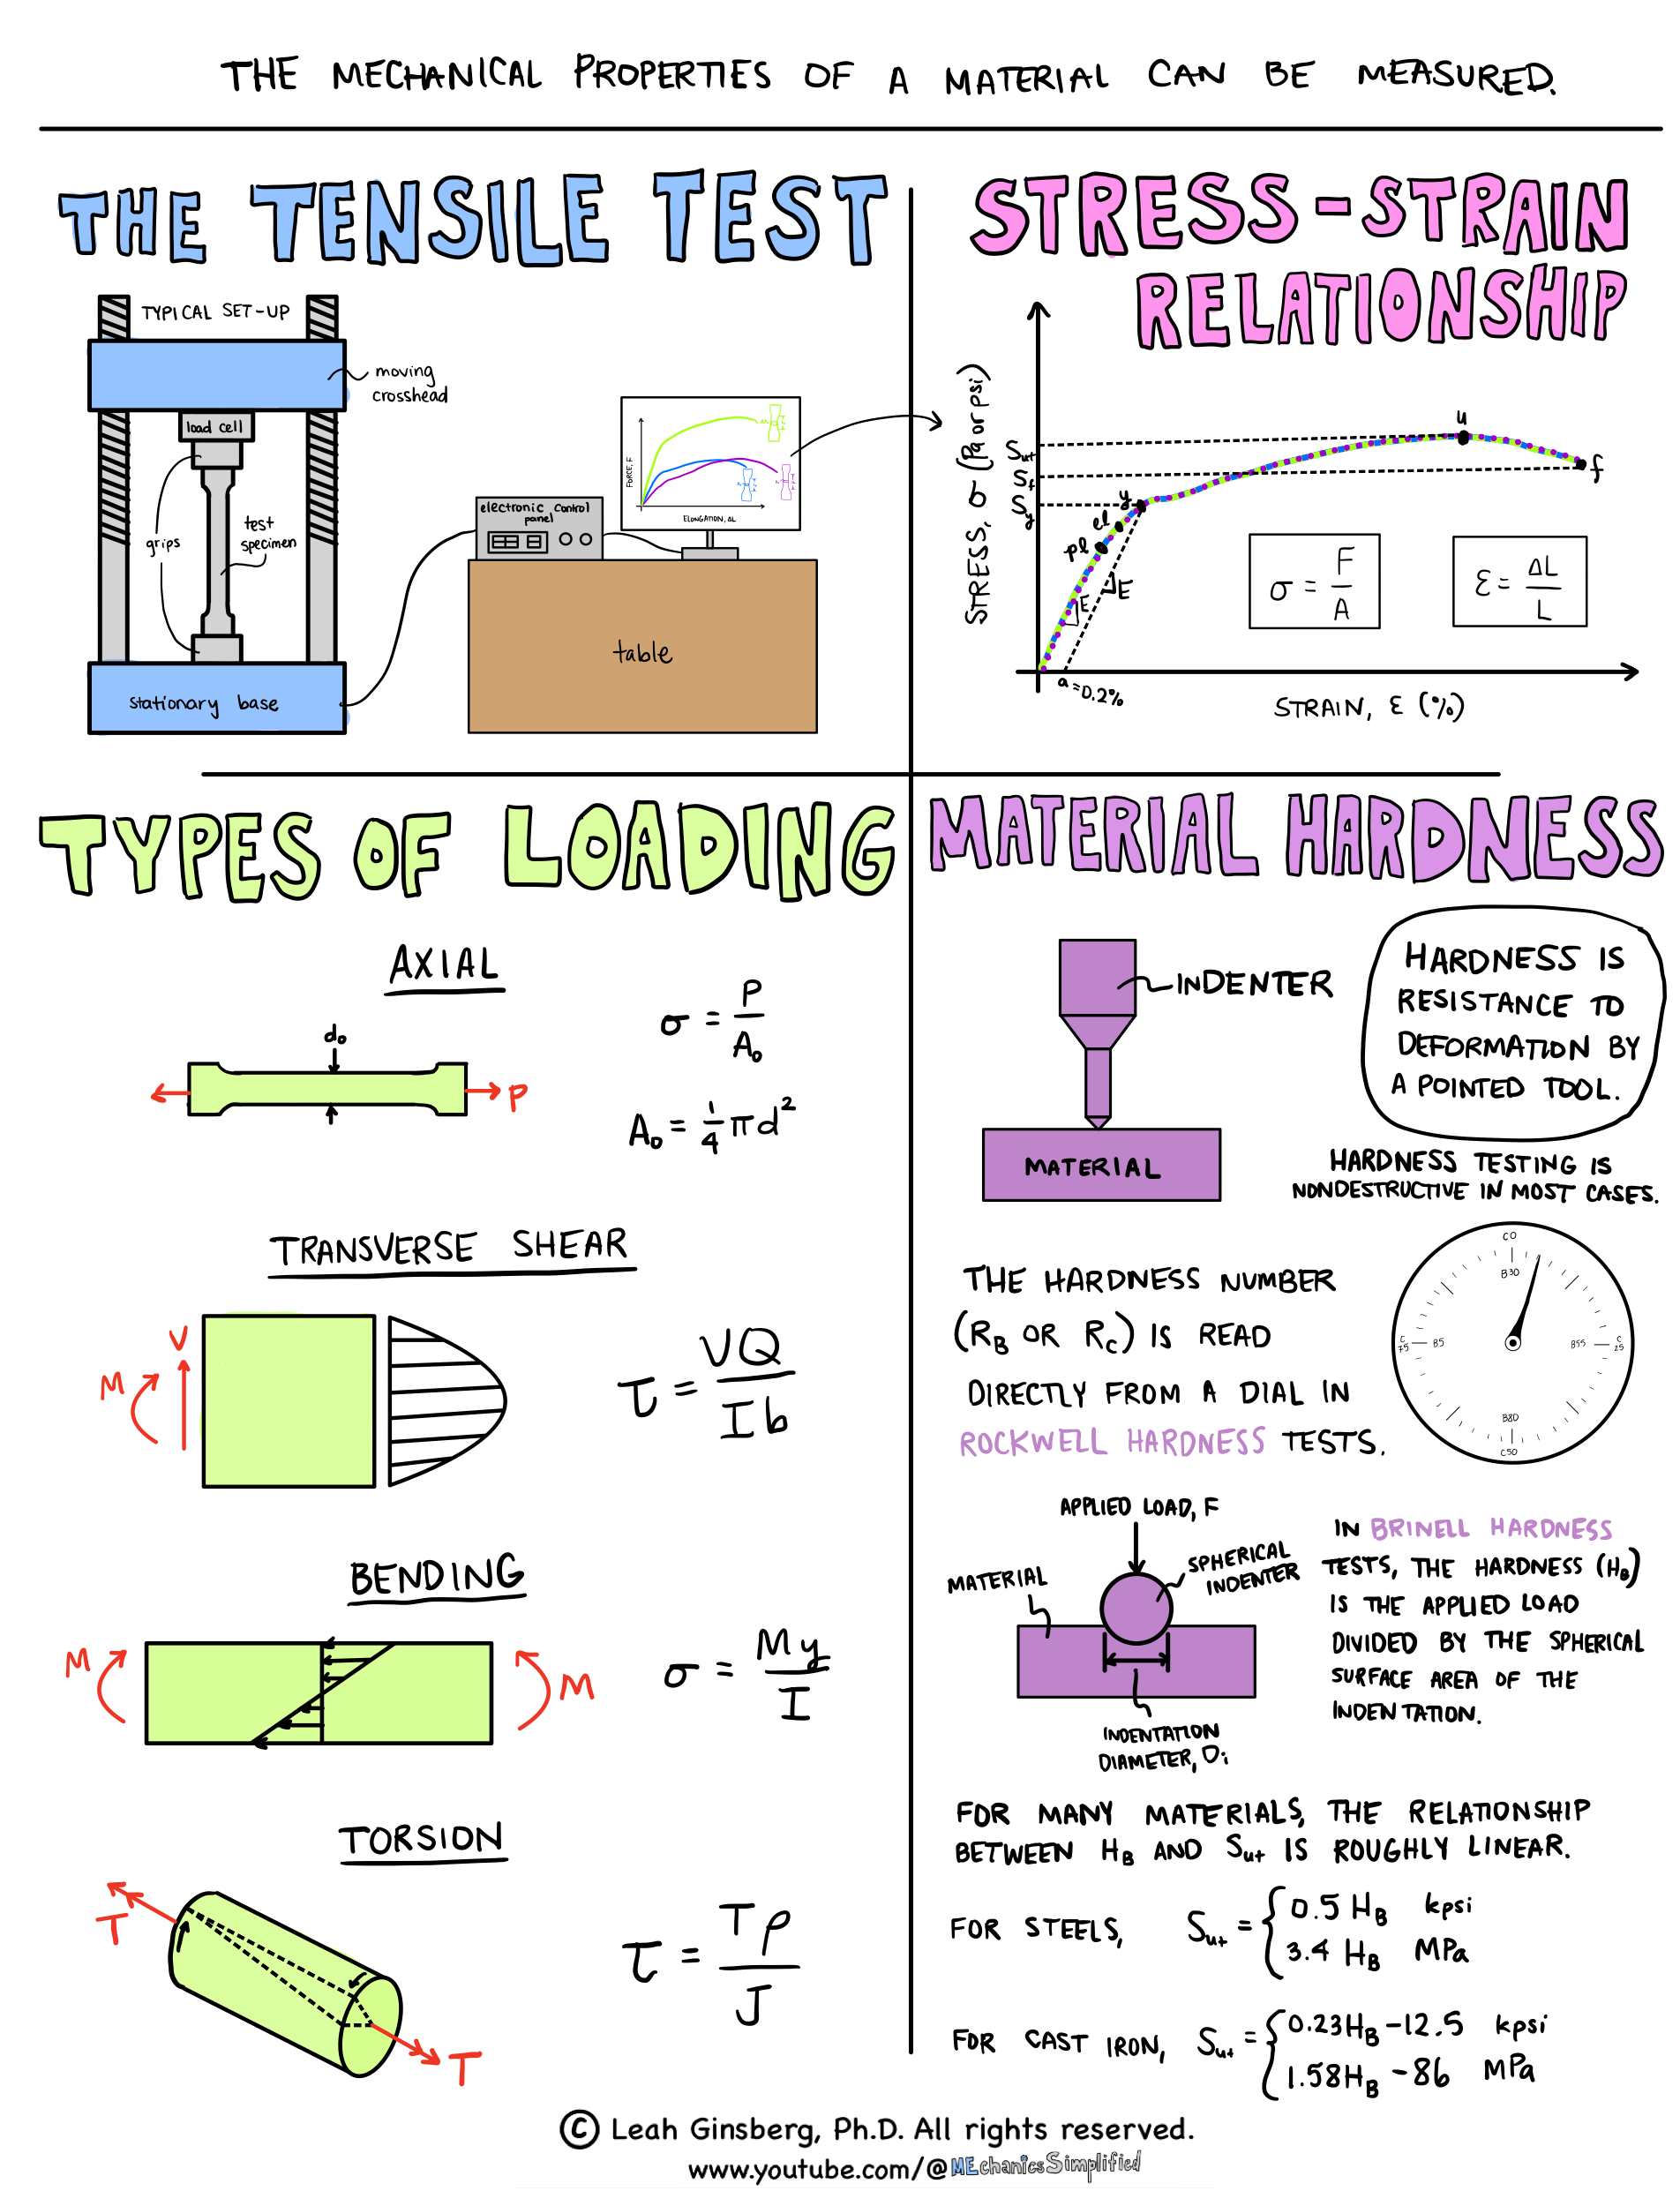 THE MECHANICAL PROPERTIES OF A MATERIAL CAN BE MEASURED.
THE TENSILE TEST
TYPICAL SET-UP
moving
crosshead
load cell
grips
test
specimen
stationary base
electronic control
panel
FORCE, F
ELONGATION, ΔL
table
STRESS-STRAIN
RELATIONSHIP
STRESS, σ (Pa or psi)
Sut
Sf
Sy
u
f
y
el
pl
E
E
a=0.2%
STRAIN, ε (%)
σ = F/A
ε = ΔL/L
TYPES OF LOADING
AXIAL
d₀
P
σ = P/A₀
A₀ = 1/4 πd²
TRANSVERSE SHEAR
V
M
τ = VQ/Ib
BENDING
M
M
σ = My/I
TORSION
T
T
τ = Tρ/J
MATERIAL HARDNESS
INDENTER
MATERIAL
HARDNESS IS
RESISTANCE TO
DEFORMATION BY
A POINTED TOOL.
HARDNESS TESTING IS
NONDESTRUCTIVE IN MOST CASES.
THE HARDNESS NUMBER
(RB OR RC) IS READ
DIRECTLY FROM A DIAL IN
ROCKWELL HARDNESS TESTS.
C0
B30
C 75
B5
B55
C 25
B80
C50
APPLIED LOAD, F
MATERIAL
SPHERICAL
INDENTER
INDENTATION
DIAMETER, Di
IN BRINELL HARDNESS
TESTS, THE HARDNESS (HB)
IS THE APPLIED LOAD
DIVIDED BY THE SPHERICAL
SURFACE AREA OF THE
INDENTATION.
FOR MANY MATERIALS, THE RELATIONSHIP
BETWEEN HB AND Sut IS ROUGHLY LINEAR.
FOR STEELS, Sut = { 0.5 HB kpsi
3.4 HB MPa
FOR CAST IRON, Sut = { 0.23HB-12.5 kpsi
1.58HB-86 MPa
© Leah Ginsberg, Ph.D. All rights reserved.
www.youtube.com/@MEchanicsSimplified